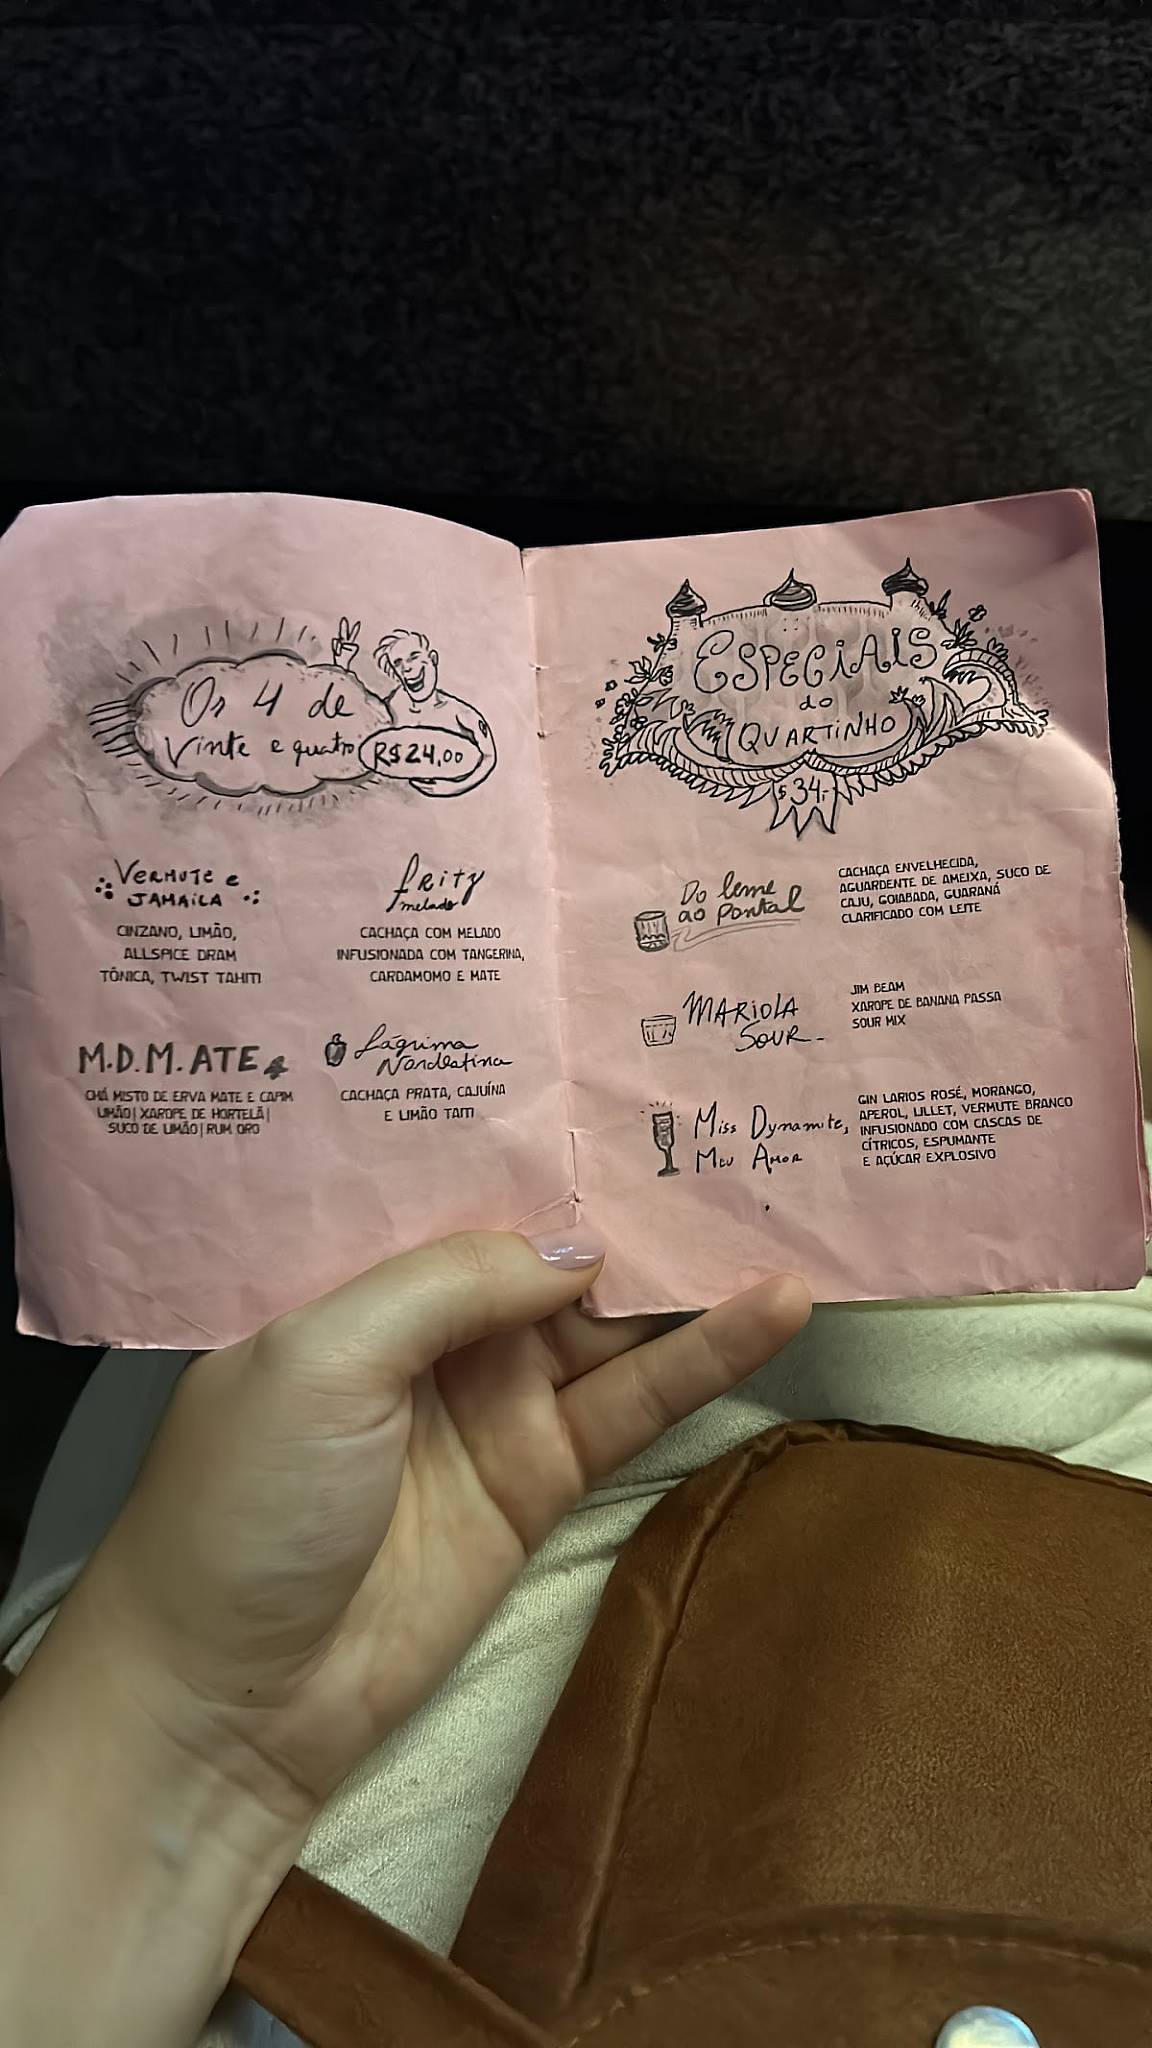 Os 4 de
Vinte e quatro
R$24,00
VERMUTE e
JAMAiCA
CINZANO, LIMÃO,
ALLSPICE DRAM
TÔNICA, TWIST TAHITI
fRitz
melado
CACHAÇA COM MELADO
INFUSIONADA COM TANGERINA,
CARDAMOMO E MATE
M.D.M.ATE
CHÁ MISTO DE ERVA MATE E CAPIM
LIMÃO| XAROPE DE HORTELÃ|
SUCO DE LIMÃO| RUM ORO
Lágrima
Nordestina
CACHAÇA PRATA, CAJUÍNA
E LIMÃO TAITI
ESPECiAiS
do
QUARTiNHO
$34,-
Do leme
ao pontal
CACHAÇA ENVELHECIDA,
AGUARDENTE DE AMEIXA, SUCO DE
CAJU, GOIABADA, GUARANÁ
CLARIFICADO COM LEITE
MARiOLA
SOUR-
JIM BEAM
XAROPE DE BANANA PASSA
SOUR MIX
Miss Dynamite,
Meu Amor
GIN LARIOS ROSÉ, MORANGO,
APEROL, LILLET, VERMUTE BRANCO
INFUSIONADO COM CASCAS DE
CÍTRICOS, ESPUMANTE
E AÇÚCAR EXPLOSIVO